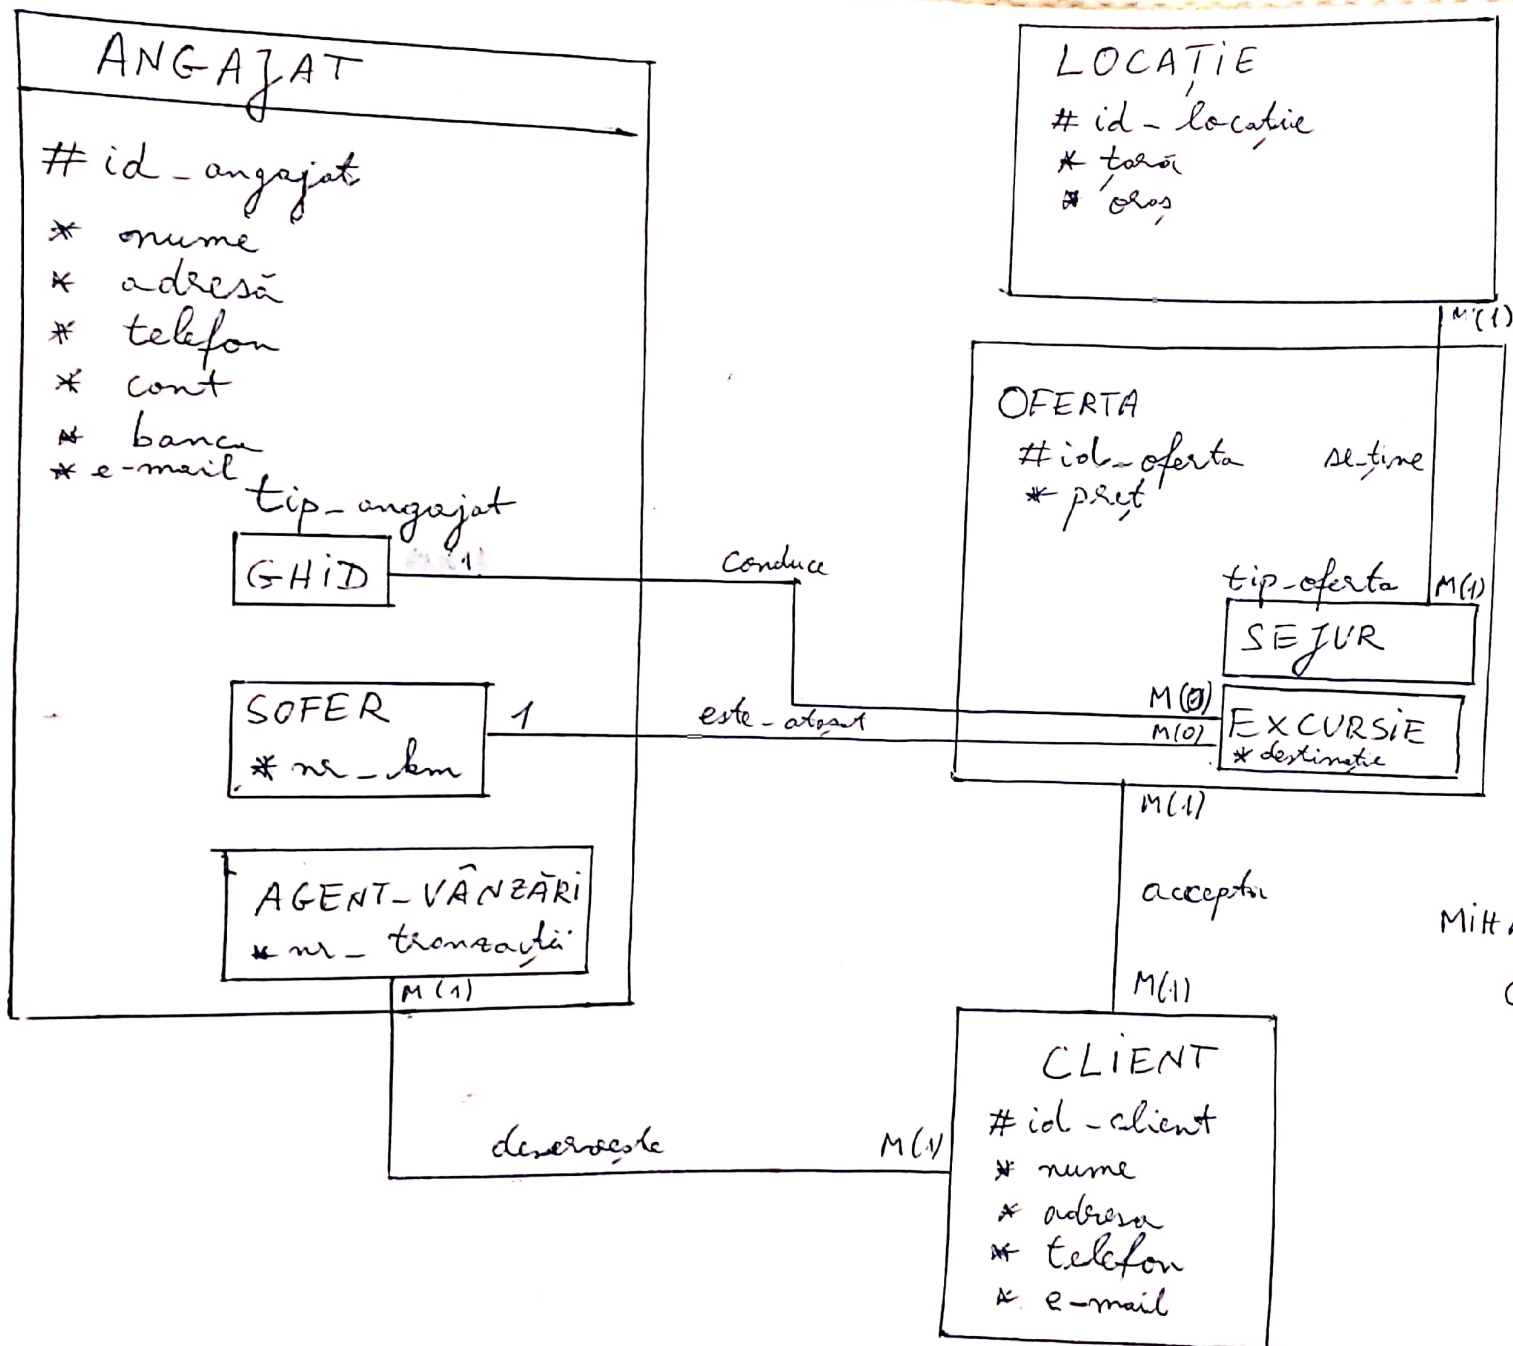 ANGAJAT
# id_angajat
* nume
* adresă
* telefon
* cont
* banca
* e-mail
tip_angajat
GHiD
1
conduce
SOFER
* nr_km
1
este_atașat
AGENT_VÂNZĂRi
* nr_tranzacții
M(1)
deservește
M(1)
LOCAȚiE
# id_locație
* țară
* oraș
M(1)
OFERTA
#id_oferta
* preț
se_ține
tip_oferta
M(1)
SEJUR
M(0)
M(0)
EXCURSiE
* destinație
M(1)
acceptă
M(1)
CLiENT
# id_client
* nume
* adresa
* telefon
* e-mail